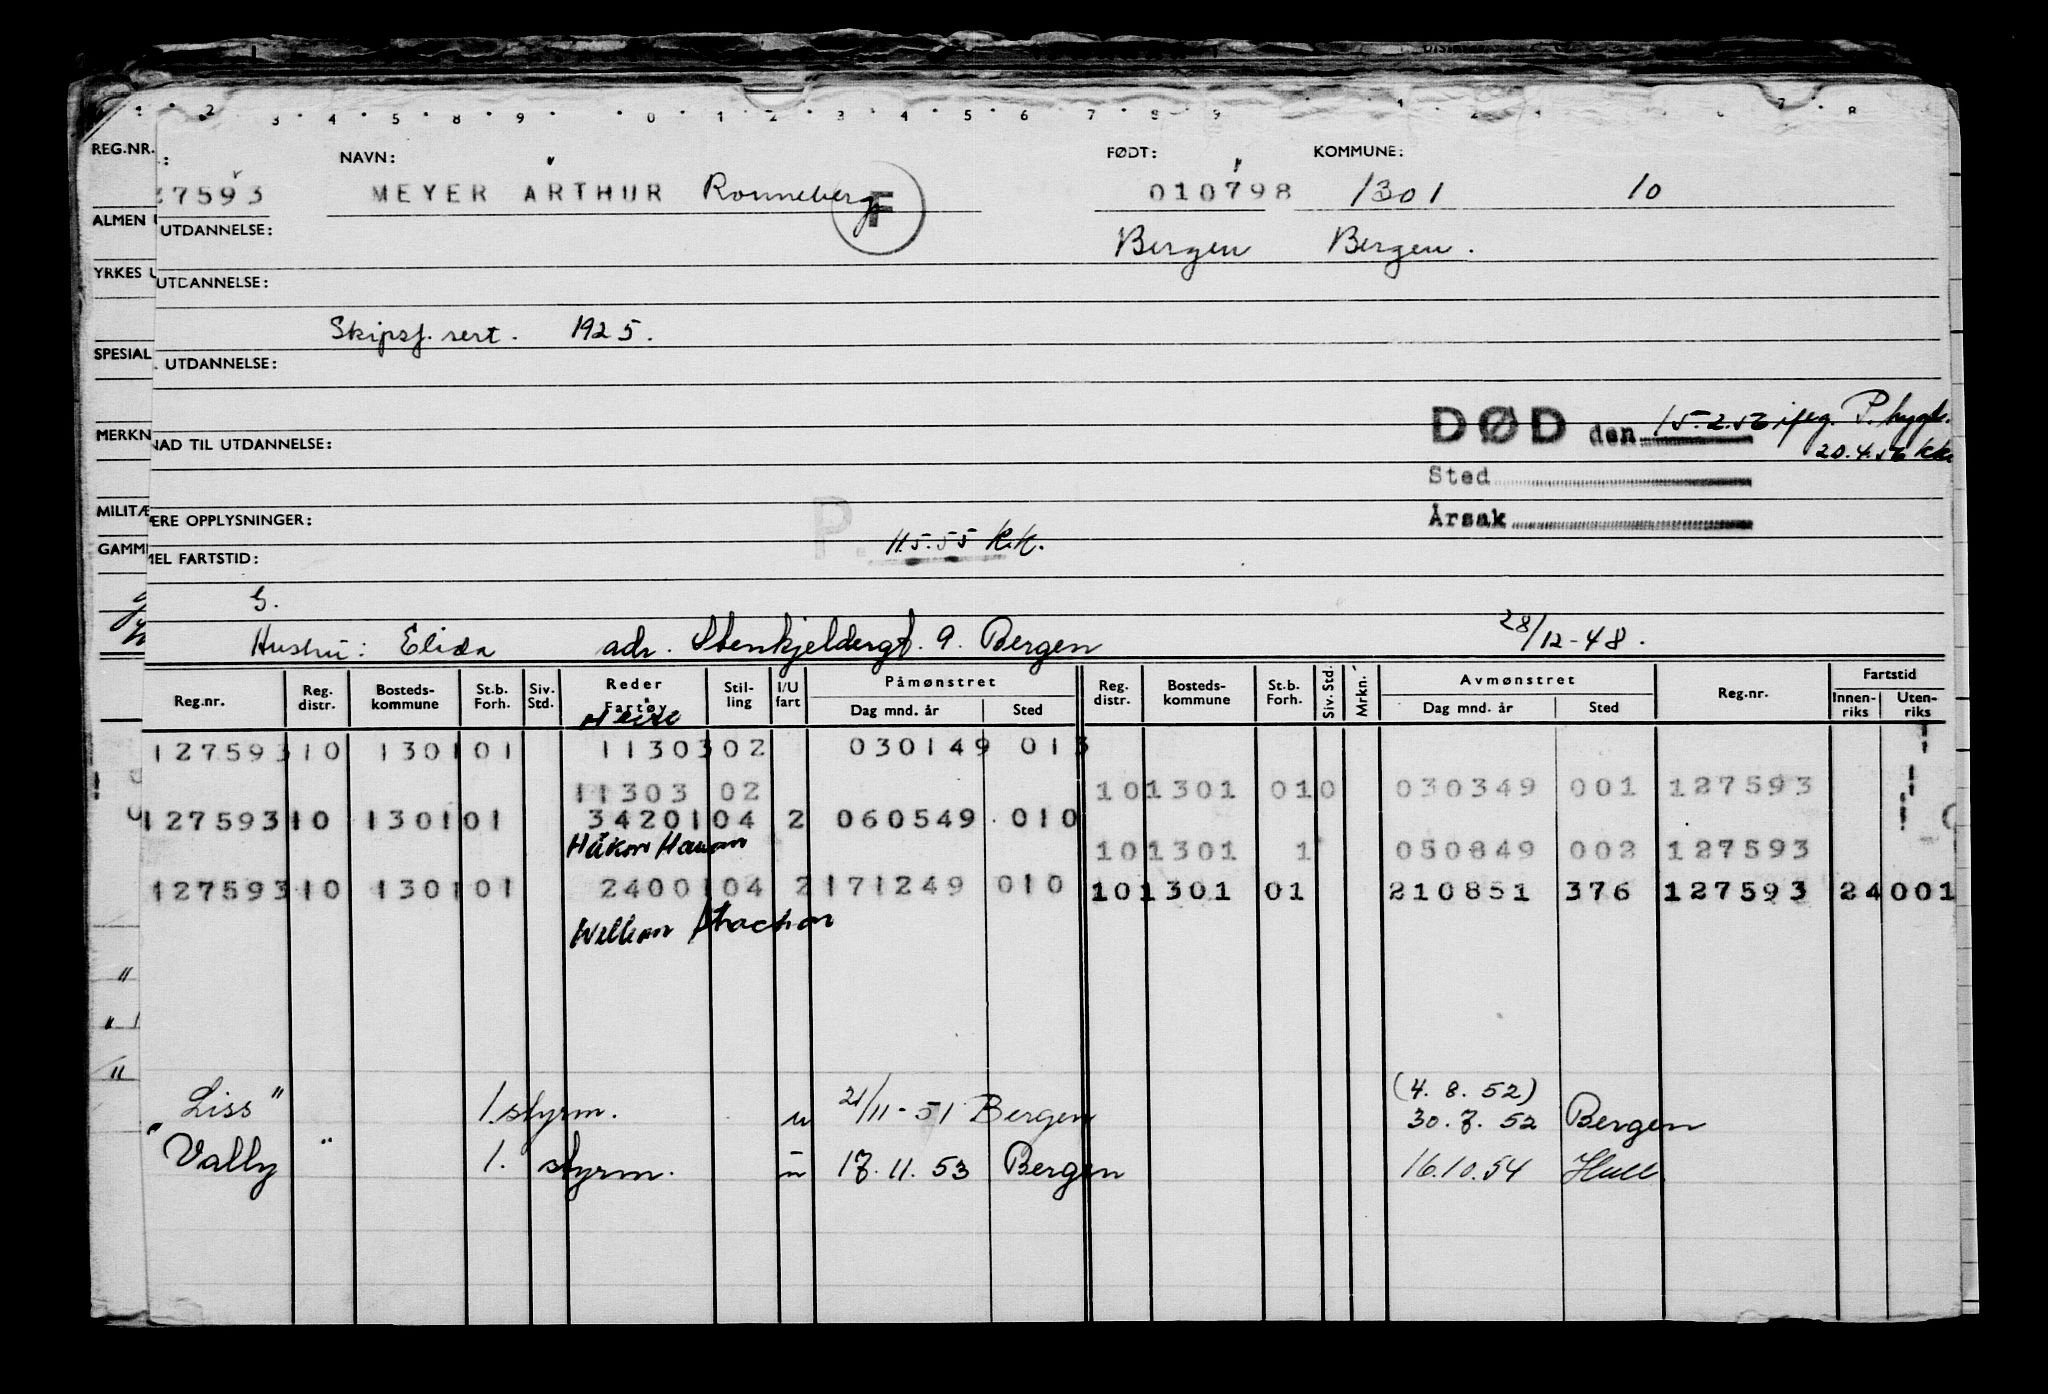 REG.NR. NAVN: FØDT: KOMMUNE:
27593 MEYER ARTHUR Ronneberg F 010798 1301 10
ALMEN UTDANNELSE: Bergen Bergen.
YRKES UTDANNELSE:
Skipsf. sert. 1925.
SPESIAL UTDANNELSE:
DØD den 15.2.56 iføg. P. hygt.
MERKN NAD TIL UTDANNELSE: 20.4.56 kk
Sted
MILITÆ ERE OPPLYSNINGER: Årsak
P. 11.5.55 K.K.
GAMMEL FARTSTID:
G.
Hustru: Elida adr. Stenkjeldergt. 9. Bergen 28/12-48.
Reg.nr. Reg. distr. Bosteds- kommune St.b. Forh. Siv. Std. Reder Fartøy Stil- ling I/U fart Påmønstret Dag mnd. år Sted Reg. distr. Bosteds- kommune St.b. Forh. Siv. Std. Mrkn. Avmønstret Dag mnd. år Sted Reg.nr. Fartstid Innen- riks Uten- riks
127593 10 1301 01 11303 02 030149 013
11303 02 10 1301 010 030349 001 127593
127593 10 1301 01 34201 04 2 060549 010
Håkon Hauan 10 1301 1 050849 002 127593
127593 10 1301 01 2400 104 2 171249 010 10 1301 01 210851 376 127593 24001
William Strachan
(4. 8. 52)
Liss" 1. styrm. u 21/11-51 Bergen 30. 7. 52 Bergen
"Vally" 1. styrm. u 17. 11. 53 Bergen 16.10.54 Hull